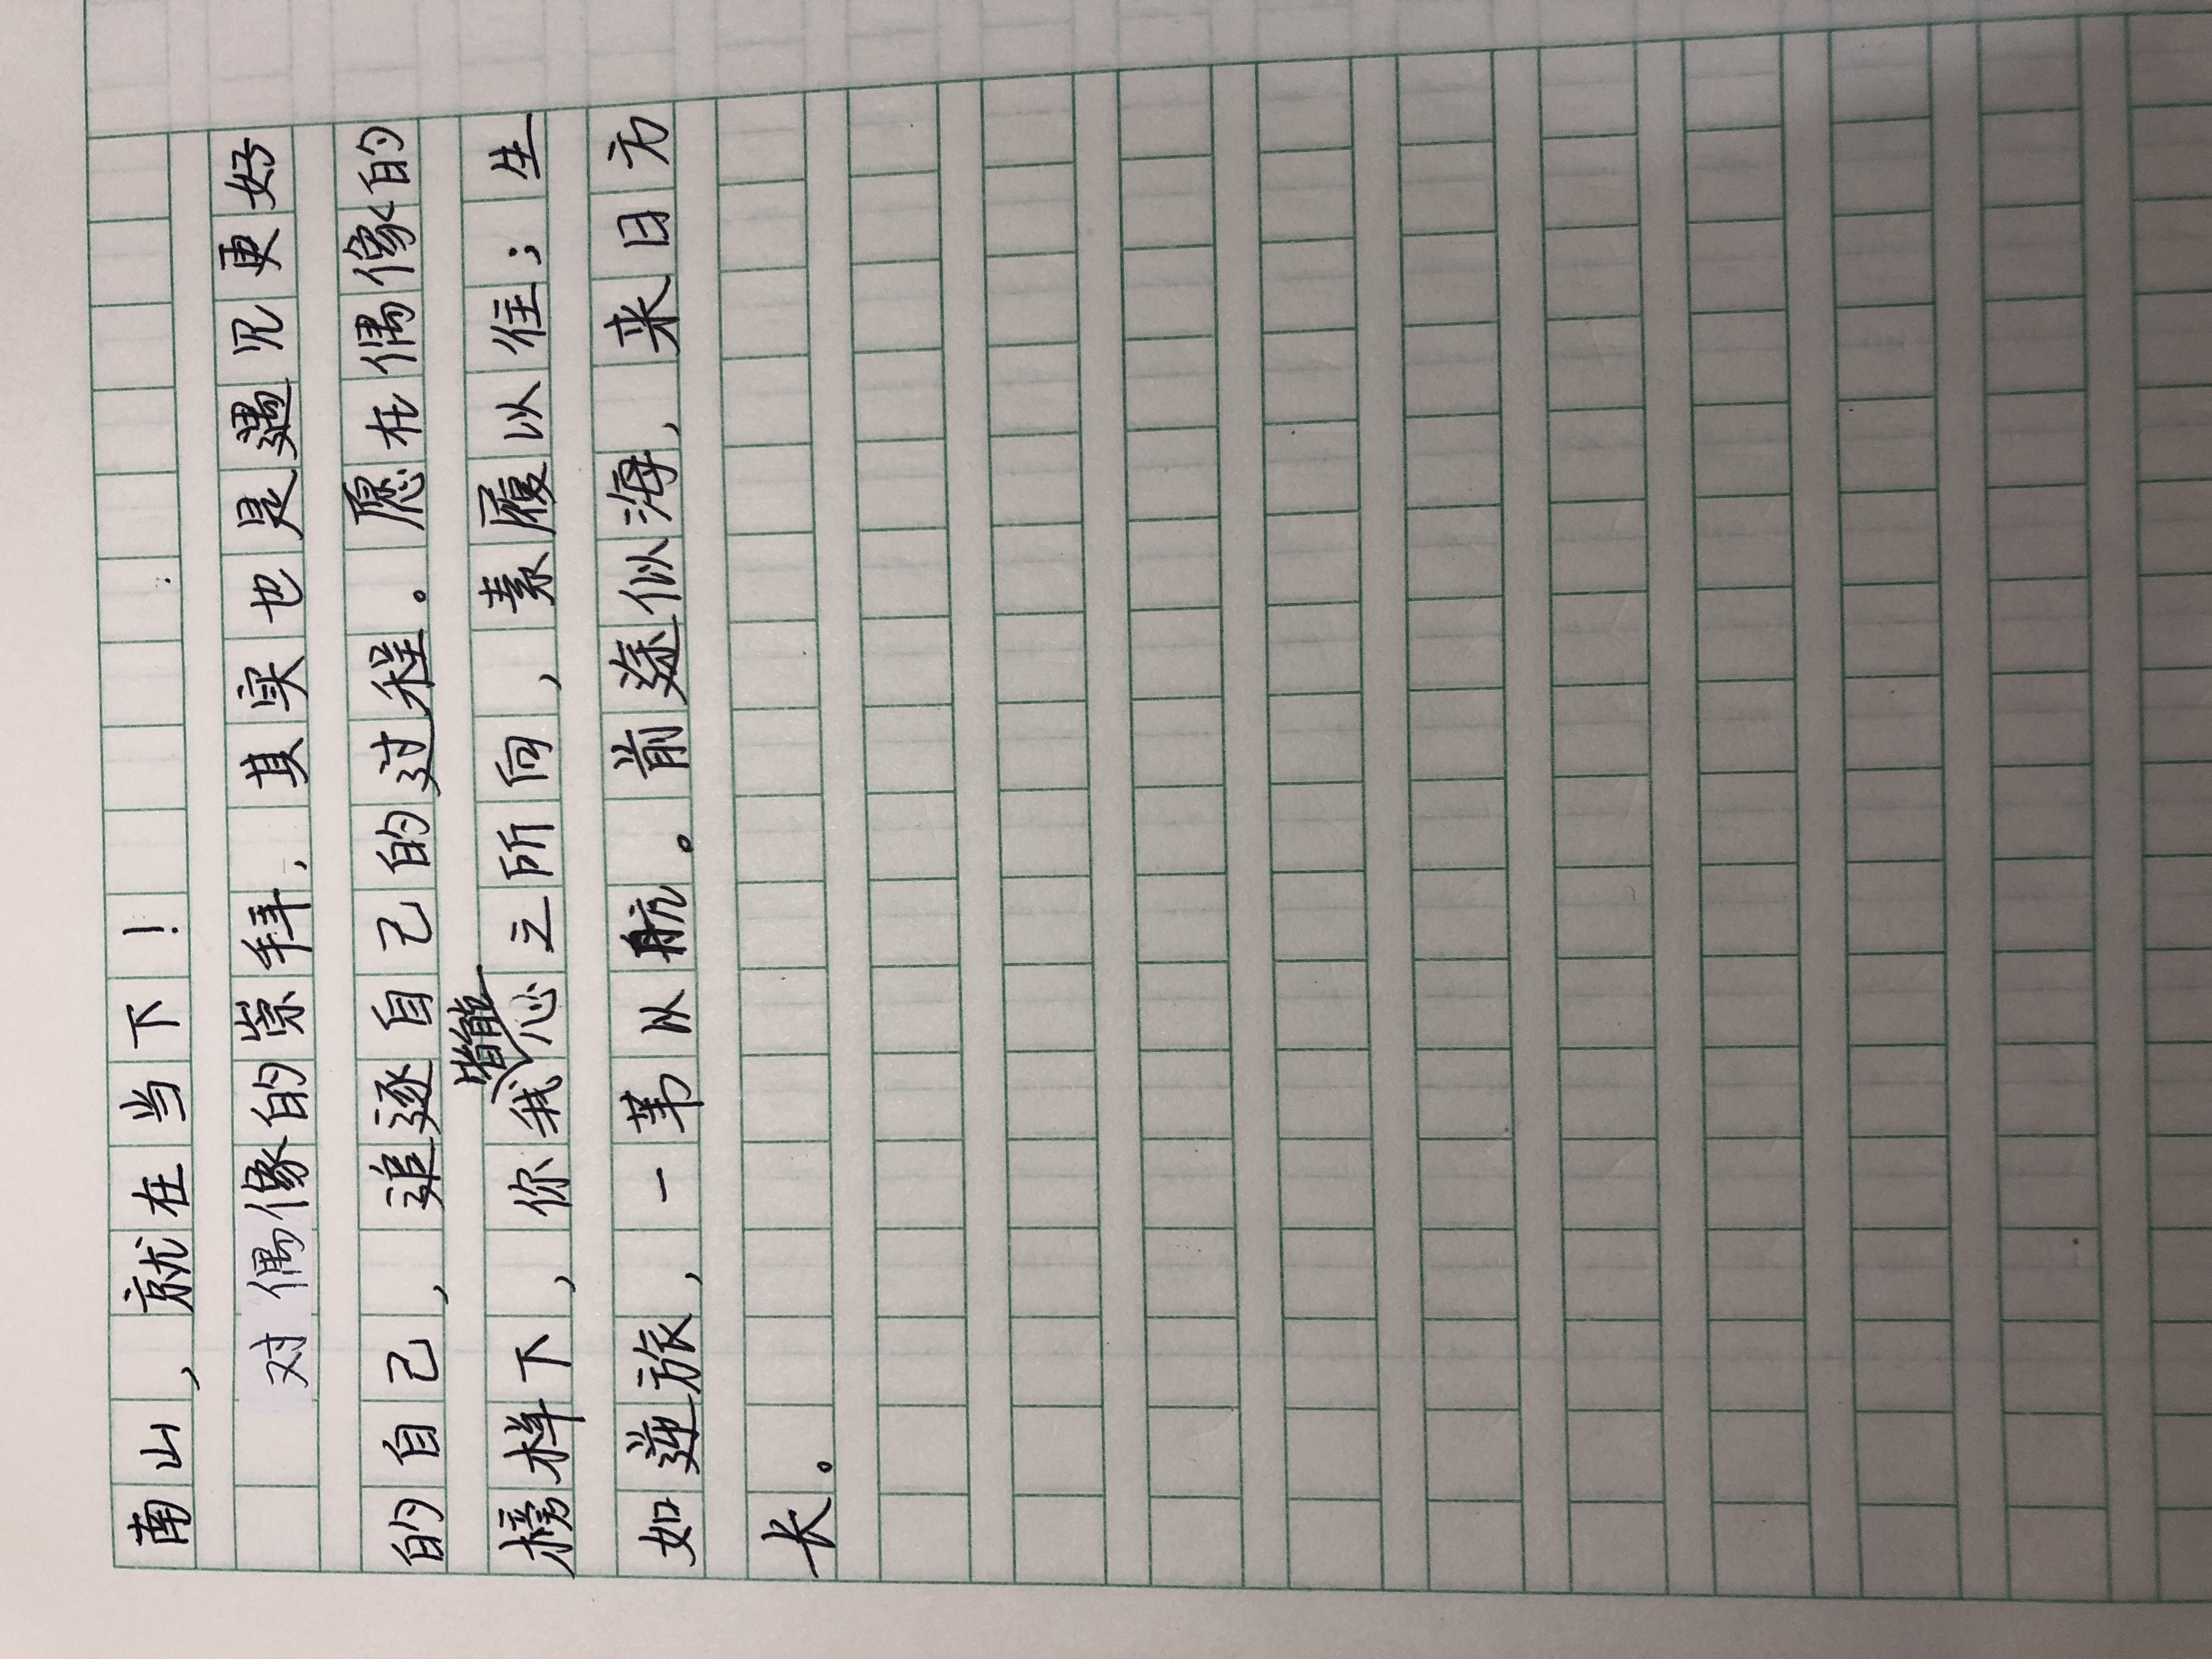 南山，就在当下！
对偶像的崇拜，其实也是遇见更好
的自己，追逐自己的过程。愿在偶像的
榜样下，你我皆能心之所向，素履以往；生
如逆旅，一苇以航。前途似海，来日方
长。